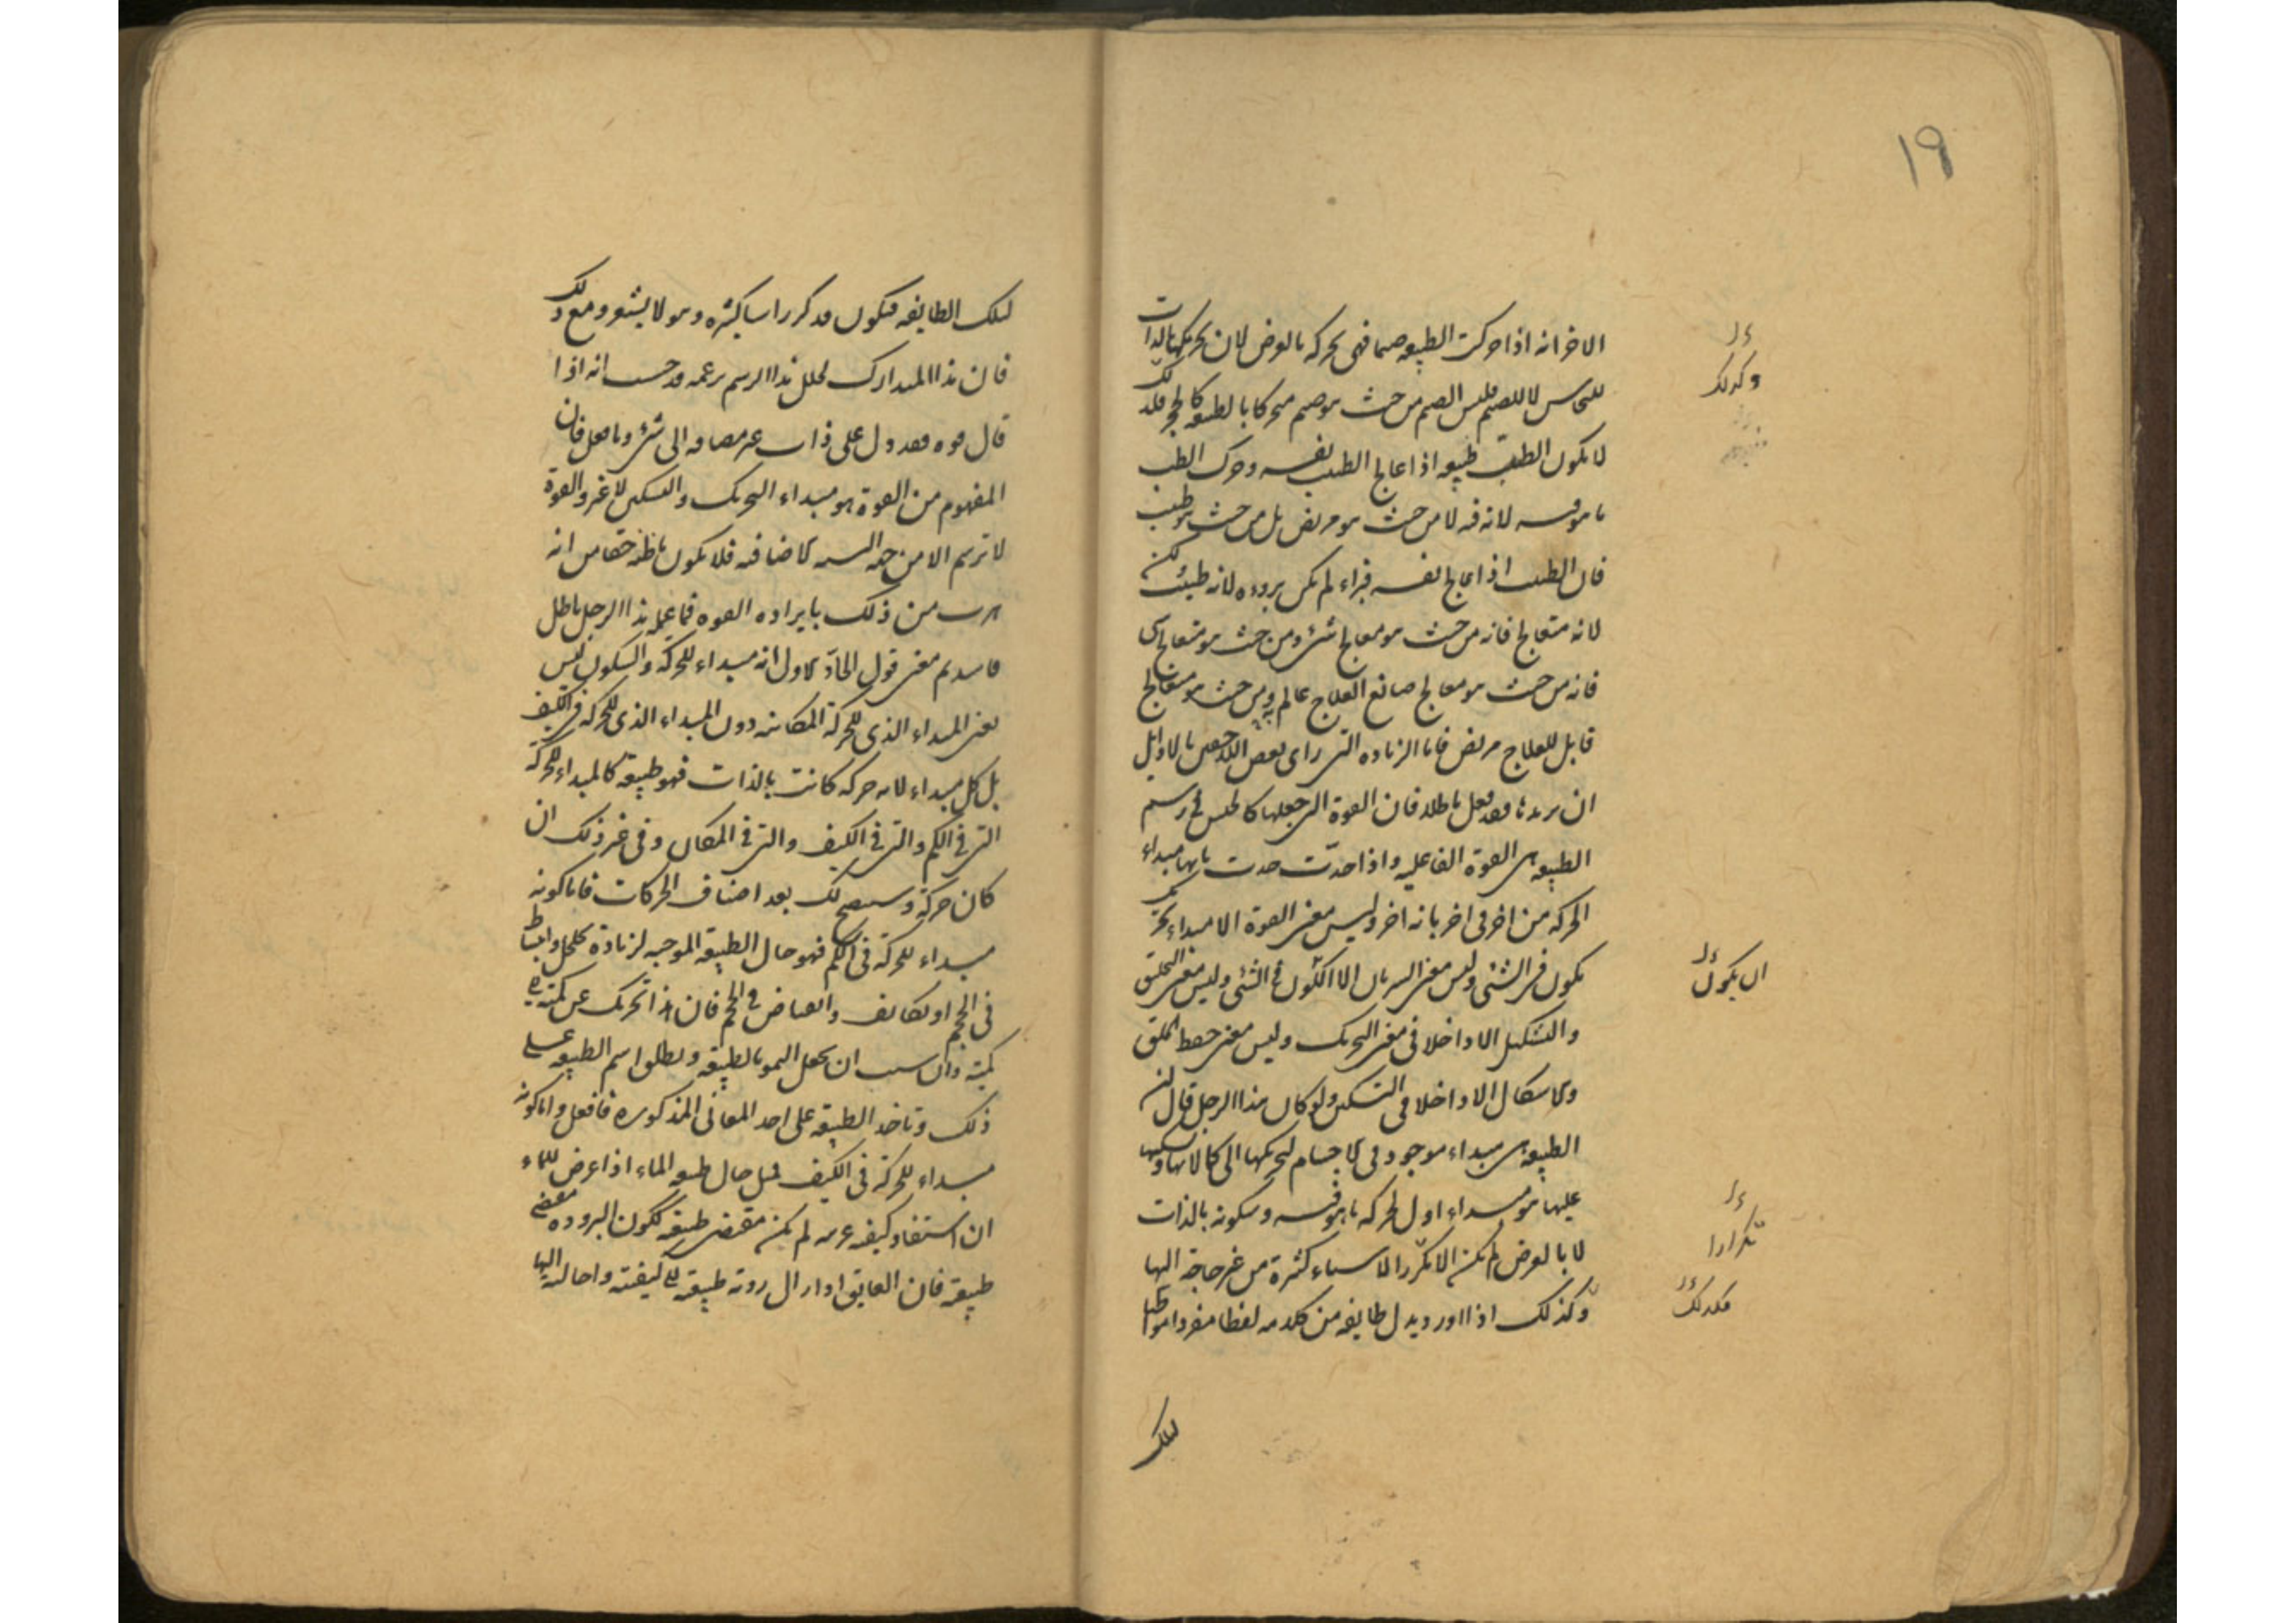 ١٩
الاخر انه اذا حركت الطبيعه صنما فهى تحركه بالعرض لان تحريكها بالذات
للنحاس لا للصنم فليس الصنم من حيث هو صنم متحركا بالطبع كالحجر فلذلك
لا يكون الطب طبيعه اذا عالج الطبيب نفسه وحرك الطب
ما هو فيه لانه فيه لا من حيث هو مريض بل من حيث هو طبيب
فان الطبيب اذا عالج نفسه فبراء لم يكن بروءه لانه طبيب لكن
لانه متعالج فانه من حيث هو معالج شئ ومن حيث هو متعالج شئ
فانه من حيث هو معالج صانع العلاج عالم به ومن حيث هو متعالج
قابل للعلاج مريض فاما الزياده التى راى بعض اللاحقين بالاوايل
ان يزيدها فقد فعل باطلا فان القوة التى جعلها كالجنس فى رسم
الطبيعه هى القوة الفاعليه واذا حدّت حدت بانها مبداء
الحركه من اخر فى اخر بانه اخر وليس معنى القوة الا مبداء تحريك
يكون فى الشئى وليس معنى السريان الا الكون فى الشئى وليس معنى التخليق
والتشكيل الا داخلا فى معنى التحريك وليس معنى حفظ الخلق
والاشكال الا داخلا فى التسكين ولو كان هذا الرجل قال ان
الطبيعه هى مبداء موجود فى الاجسام لتحريكها الى كمالاتها وتسكينها
عليها هو مبداء اول لحركه ما هو فيه وسكونه بالذات
لا بالعرض لم يكن الا مكررا لاسياء كثيرة من غير حاجة اليها
وكذلك اذا اورد بدل طايفه من كلامه لفظا مفردا مواطئا
لتلك
وكذلك
ان يكون
تكرارا
فكذلك
لتلك الطايفه فيكون قد كرر اسيا كثيره وهو لا يشعر ومع ذلك
فان هذا المتدارك لخلل هذا الرسم بزعمه قد حسب انه اذا
قال قوه فقد دل على ذات غير مضافه الى شئ وما فعل فان
المفهوم من القوة هو مبداء التحريك والتسكين لا غير والقوة
لا ترسم الا من جهه النسبه الاضافيه فلا يكون ما ظنه حقا من انه
هرب من ذلك بايراده القوه فما عمله هذا الرجل باطل
فاسد ثم معنى قول الحادّ الاول انه مبداء للحركة والسكون ليس
يعنى المبداء الذى للحركة المكانيه دون المبداء الذى للحركه فى الكيف
بل كل مبداء لايه حركه كانت بالذات فهو طبيعة كالمبداء للحركة
التى فى الكم والتى فى الكيف والتى فى المكان وفى غير ذلك ان
كان حركة وسيتضح لك بعد اصناف الحركات فاما كونه
مبداء للحركة فى الكم فهو حال الطبيعة الموجبه لزيادة تخلخل وانبساط
فى الحجم او تكاثف وانقباض فى الحجم فان هذا تحريك عن كميه الى
كمية وان سيت ان تجعل النمو بالطبيعه وتطلق اسم الطبيعه على
ذلك وتاخذ الطبيعة على احد المعانى المذكوره فافعل واما كونه
مبداء للحركة فى الكيف فمثل حال طبيعه الماء اذا عرض للماء
ان استفاد كيفيه غريبه لم يكن مقتضى طبيعته لكون البروده مقتضى
طبيعته فان العايق اذا زال ردته طبيعته الى كيفيته واحالته اليها